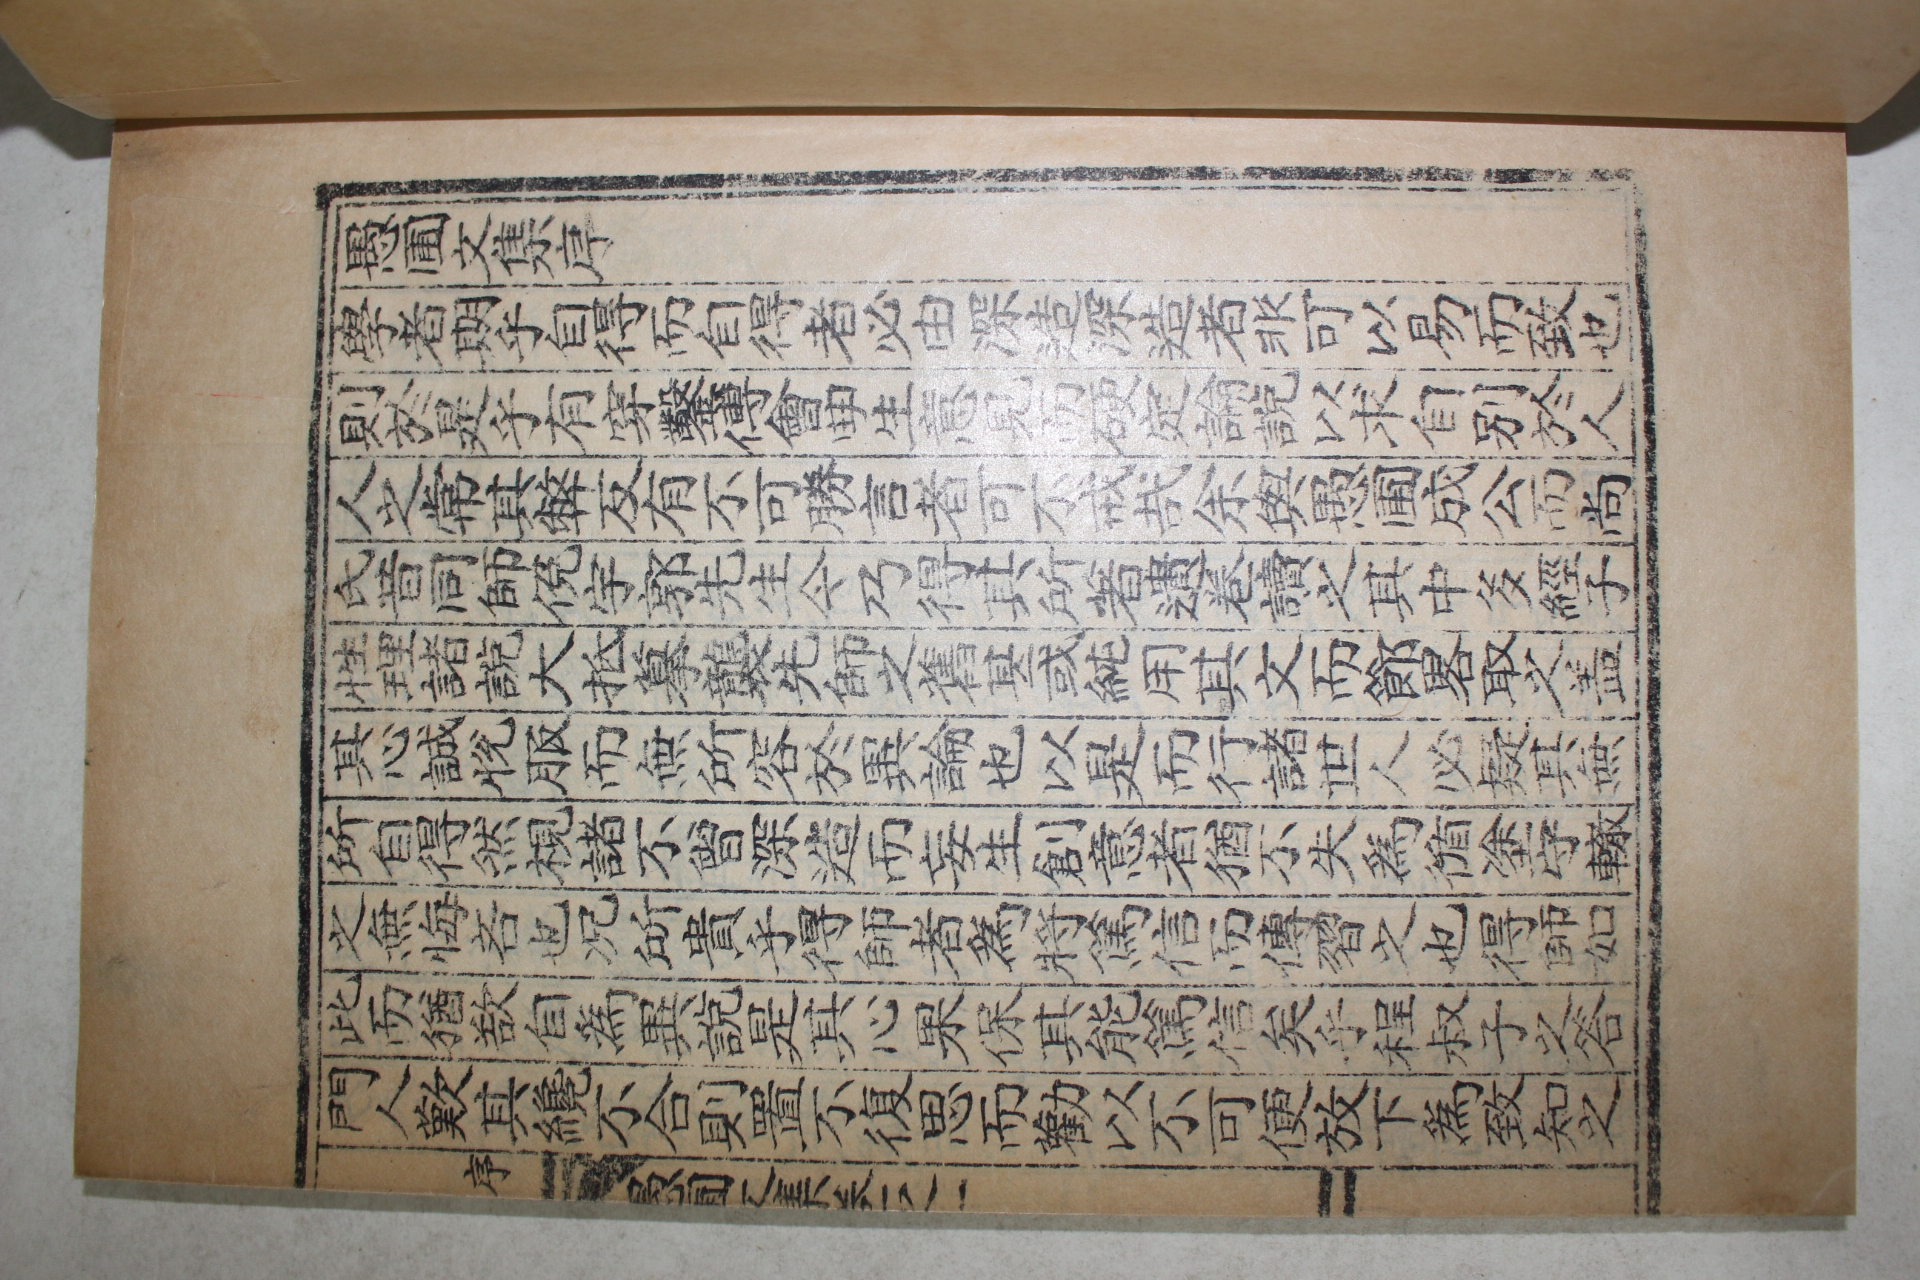 愚圃文集序
學者期乎自得而自得者必由深造深造者非可以易而致也
則於是乎有穿鑿傅會曲生意見而硬定論說以求自別於人
人之常其弊反有不可勝言者可不戒哉余與愚圃成公而尚
氏昔同師俛宇郭先生今乃得其所著遺卷讀之其中多經子
性理諸說大抵摹襲先師之舊甚或純用其文而節畧取之盖
其心誠悅服而無所容於異論也以是而行諸世人必疑其無
所自得然視諸不曾深造而妄生創意者猶不失爲循塗守轍
之無悔吝也况所貴乎得師者爲將篤信而傳習之也得師如
此而猶欲自爲異說是其心果保其能篤信矣乎程叔子之答
門人歎其纔不合則置不復思而勸以不可便放下爲致知之
序
愚圃文集卷之一